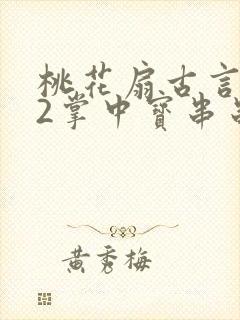 桃花扇古言
2掌中寶串
黄秀梅